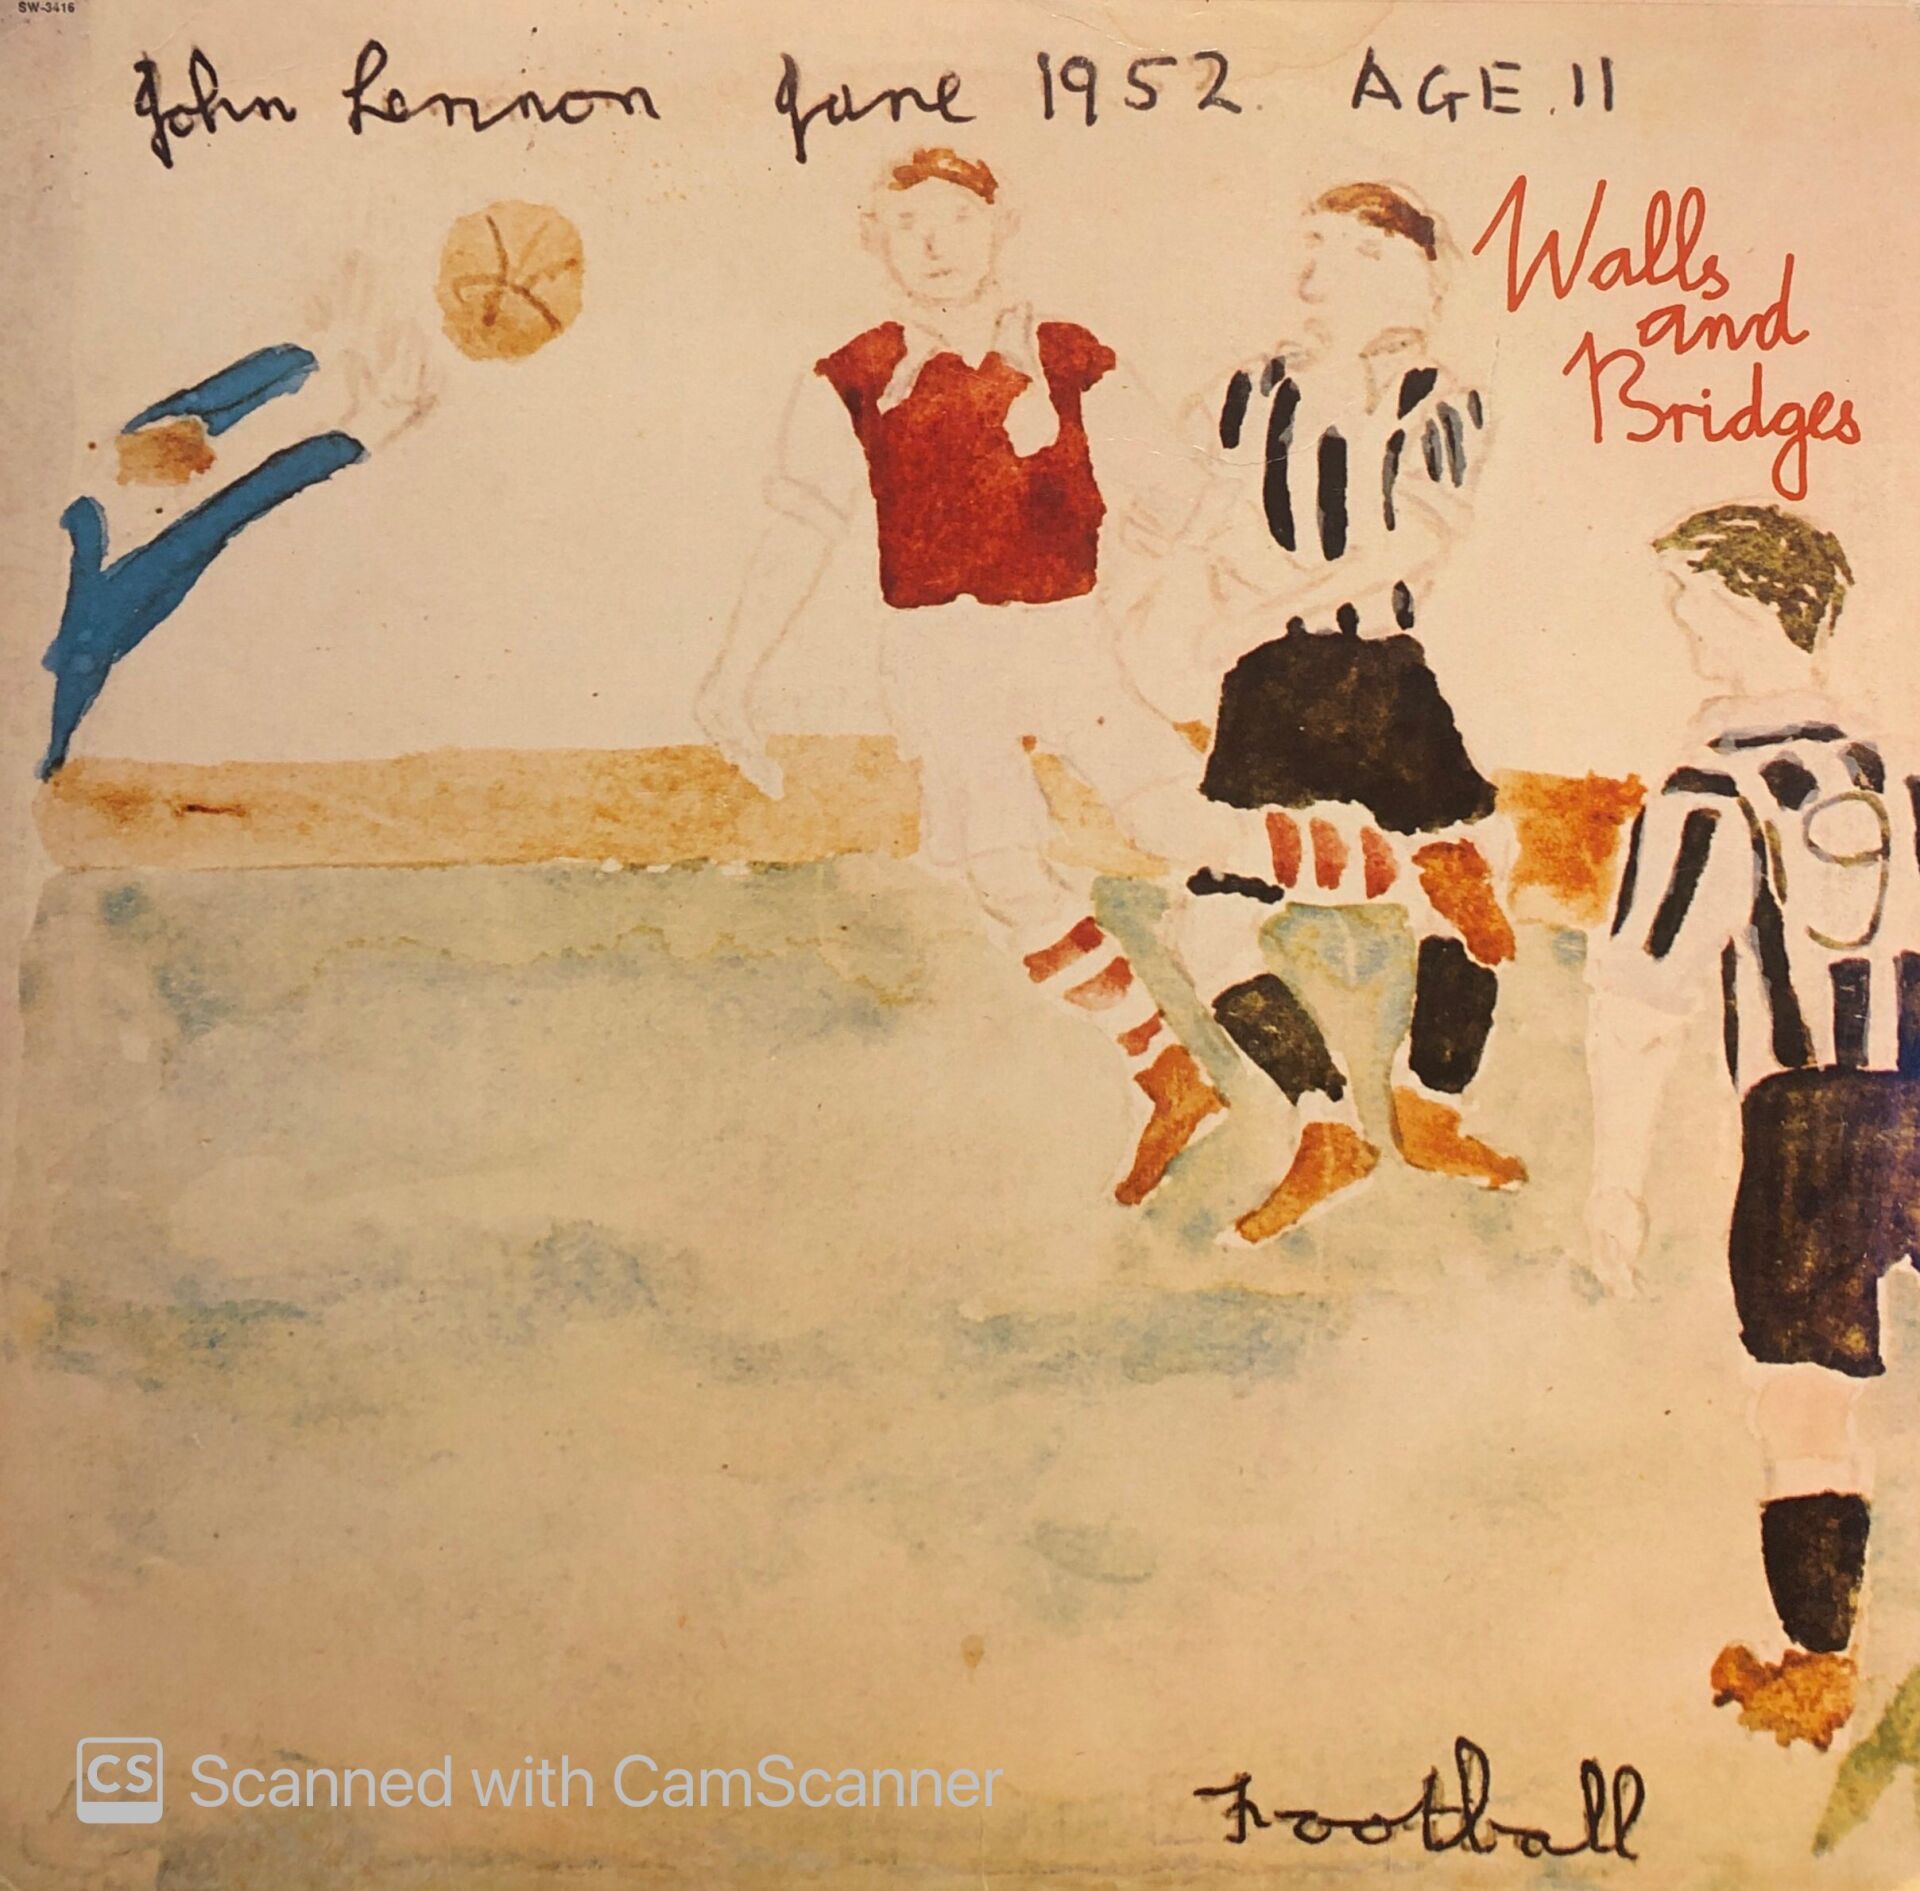 SW-3416
John Lennon June 1952. AGE. 11
Walls
and
Bridges
Football
CS Scanned with CamScanner